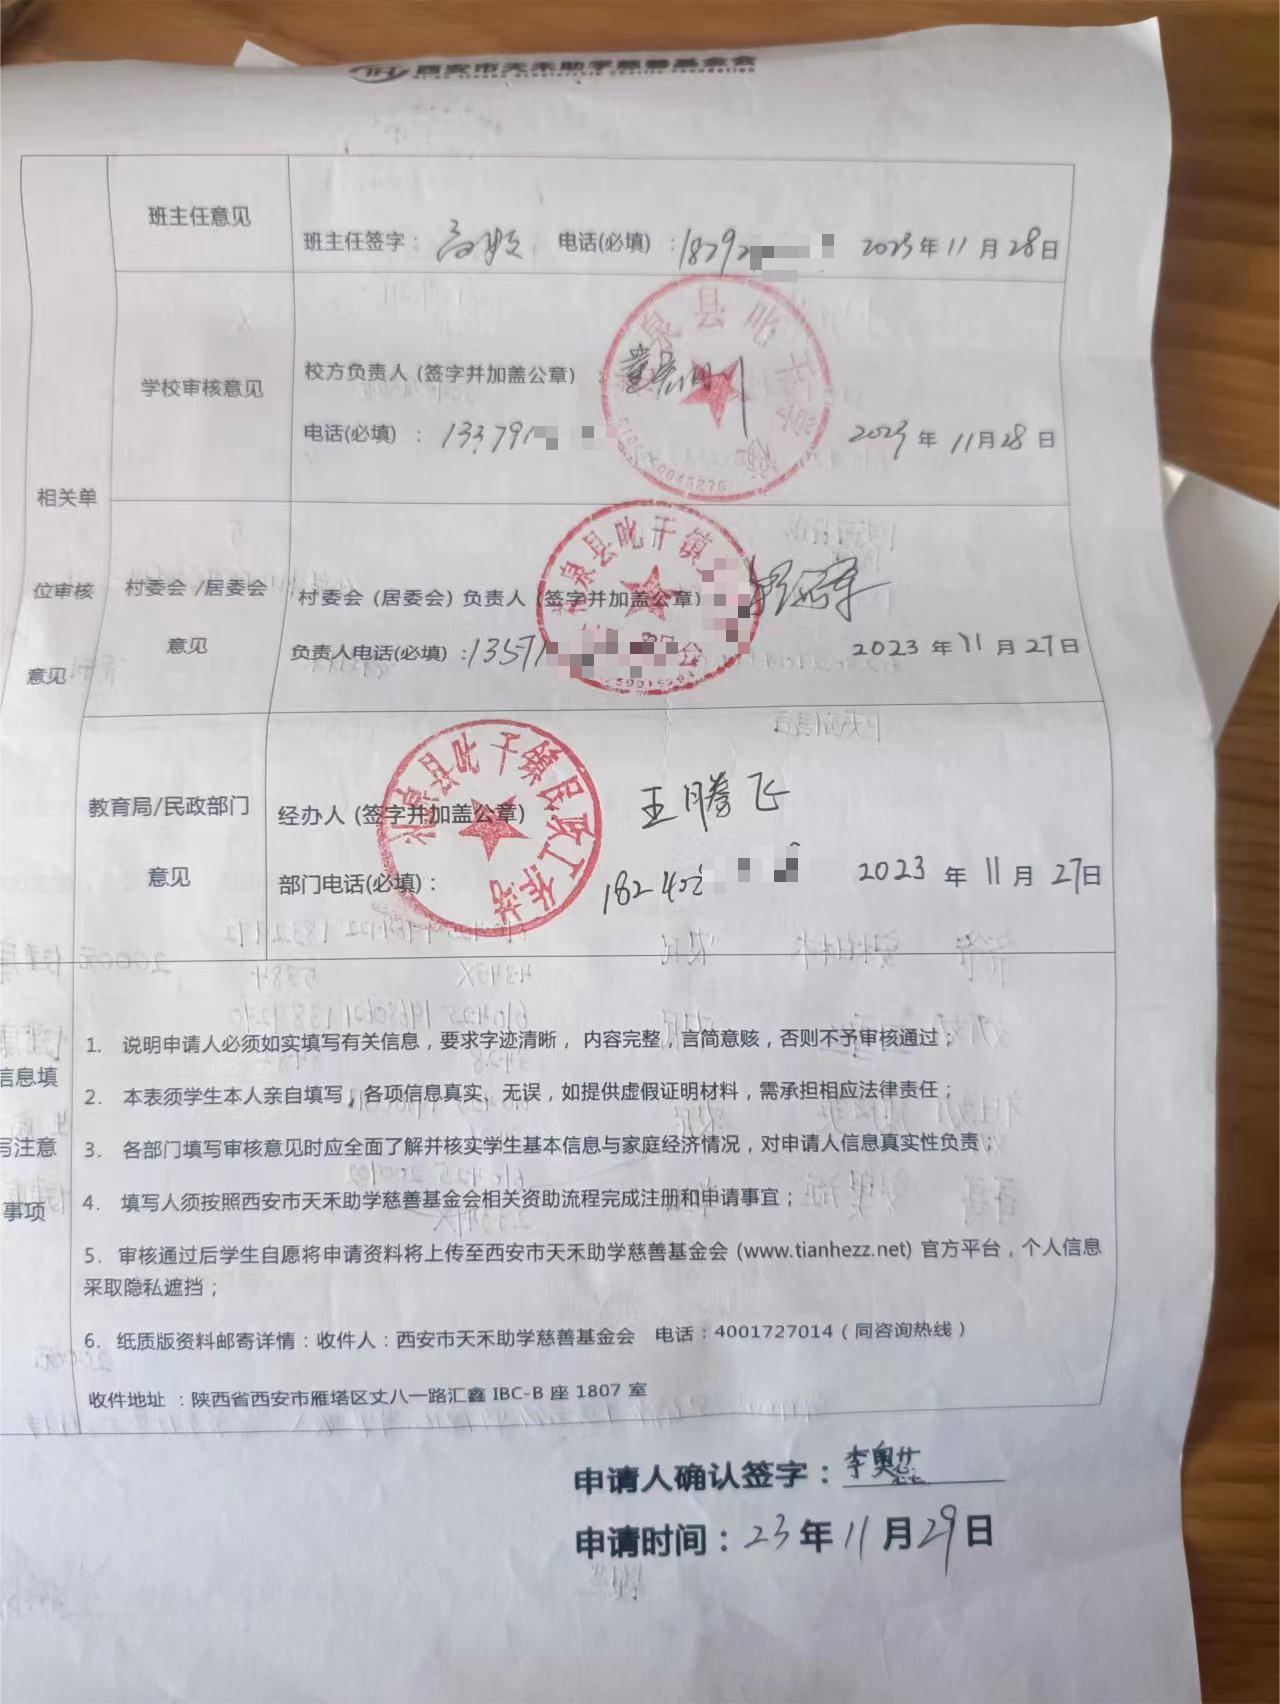 西安市天禾助学慈善基金会
相关单位审核意见
班主任意见
班主任签字： 电话(必填)：18292 2023年11月28日
学校审核意见
校方负责人 (签字并加盖公章)：
电话(必填)：133791 2023年11月28日
泉县叱干
村委会/居委会意见
村委会 (居委会) 负责人 (签字并加盖公章)
负责人电话(必填)：13571 2023年11月27日
泉县叱干镇
教育局/民政部门意见
经办人 (签字并加盖公章) 王腾飞
部门电话(必填)： 18240 2023年11月27日
泉县叱干镇民政工作站
信息填写注意事项
1. 说明申请人必须如实填写有关信息，要求字迹清晰，内容完整，言简意赅，否则不予审核通过；
2. 本表须学生本人亲自填写，各项信息真实、无误，如提供虚假证明材料，需承担相应法律责任；
3. 各部门填写审核意见时应全面了解并核实学生基本信息与家庭经济情况，对申请人信息真实性负责；
4. 填写人须按照西安市天禾助学慈善基金会相关资助流程完成注册和申请事宜；
5. 审核通过后学生自愿将申请资料将上传至西安市天禾助学慈善基金会 (www.tianhezz.net) 官方平台，个人信息
采取隐私遮挡；
6. 纸质版资料邮寄详情：收件人：西安市天禾助学慈善基金会 电话：4001727014（同咨询热线）
收件地址：陕西省西安市雁塔区丈八一路汇鑫 IBC-B 座 1807 室
申请人确认签字：李奥
申请时间：23年11月29日